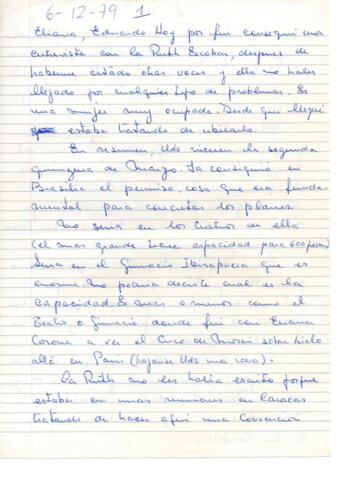 6-12-79 1
Eliana, Eduardo Hoy por fin conseguí una
entrevista con la Ruth Escobar, despues de
haberme citado otras veces, y ella no haber
llegado por cualquier tipo de problemas. Es
una mujer muy ocupada. Desde que llegué
estaba tratando de ubicarla.
En resumen, Uds vienen la segunda
quincena de Marzo. Ya consiguió en
Brasilia el permiso, cosa que era funda-
mental para concretar los planes.
No sería en los teatros de ella
(el mas grande tiene capacidad para 600 person)
Sería en el Gimnacio Ibirapuera que es
enorme No podria decirte cual es la
capacidad. Es mas o menos como el
teatro o Gimnacio donde fui con Eliana
Corona a ver el Circo de Moscú sobre hielo
allá en Paris (haganse Uds una idea).
La Ruth no les había escrito porque
estaba en unas reuniones en Caracas
tratando de hacer aquí una Convención